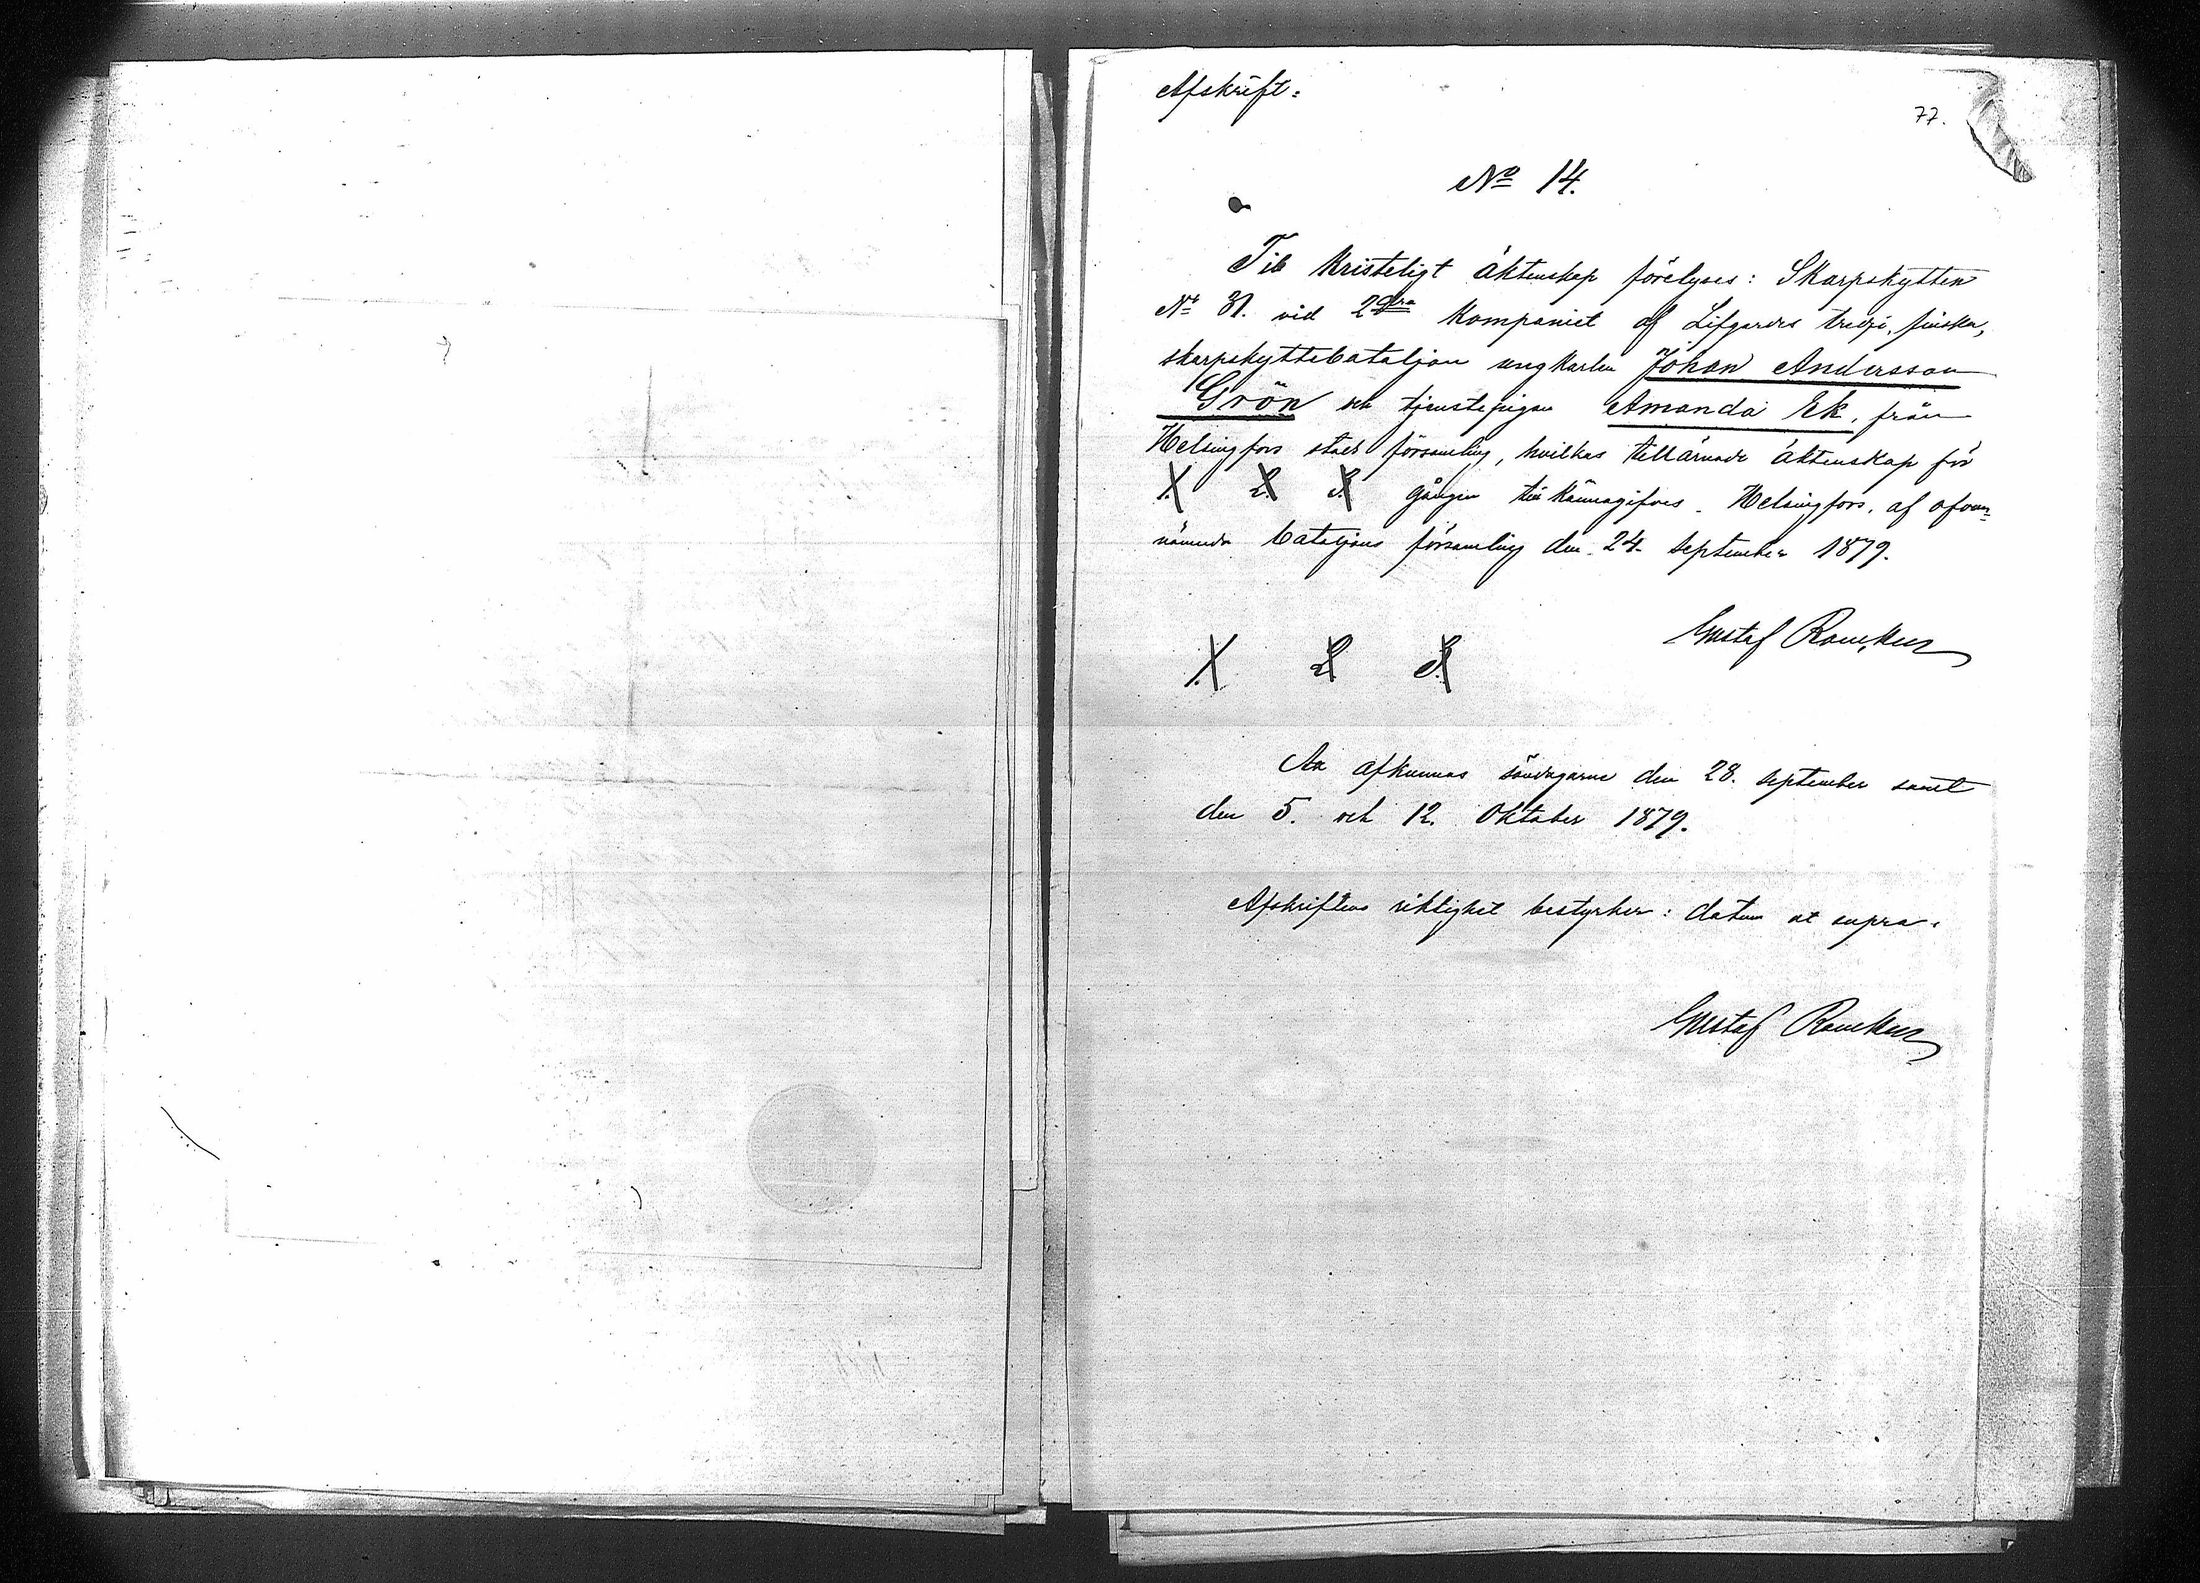 Afskrift:
77.
No 14.
Till kristeligt äktenskap förelyses: Skarpskytten
No 31. vid 2dra kompaniet af Lifgardes tredje, finska,
skarpskyttebataljon ungkarlen Johan Andersson
Grön och tjenstepigan Amanda Ek, från
Helsingfors stads församling, hvilkas tillärnade äktenskap för
1. 2. 3. gången till kännagifves. Helsingfors, af ofvan-
nämnda bataljons församling den 24. September 1879.
Gustaf Rancken
1. 2. 3.
Att afkunnas söndagarne den 28. september samt
den 5. och 12. Oktober 1879.
Afskriftens riktighet bestyrker: datum ut supra.
Gustaf Rancken